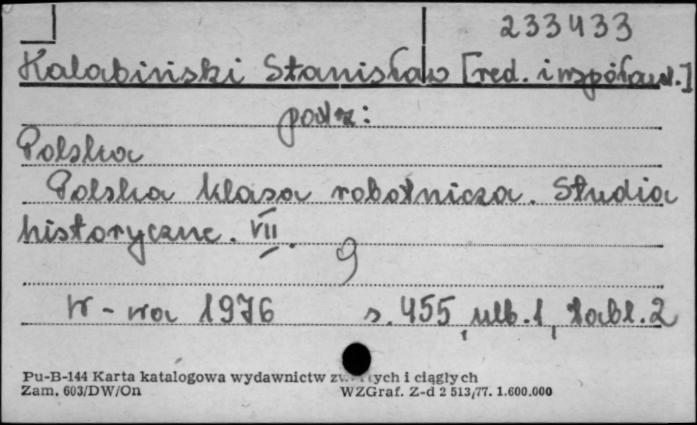 233433
Kalabiński Stanisław [red. i współaut.]
patrz:
Polska
Polska klasa robotnicza. Studia
historyczne. VII.
9
W-wa 1976 s. 455, nlb. 1, tabl. 2
Pu-B-144 Karta katalogowa wydawnictw zw tych i ciągłych
Zam. 603/DW/On WZGraf. Z-d 2 513/77. 1.600.000